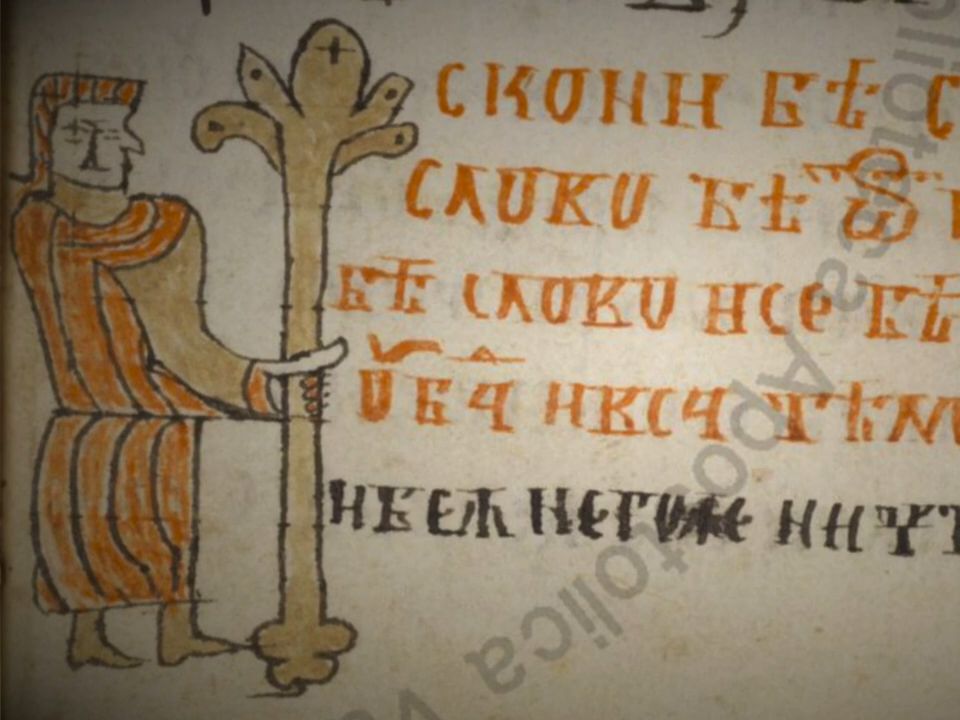 скони бѣ с
слово бѣ ѿ
бѣ слово и се бѣ
ѹ б҃а и вса тѣм
и беꙁ него же ничт
Bibliotheca Apostolica Va